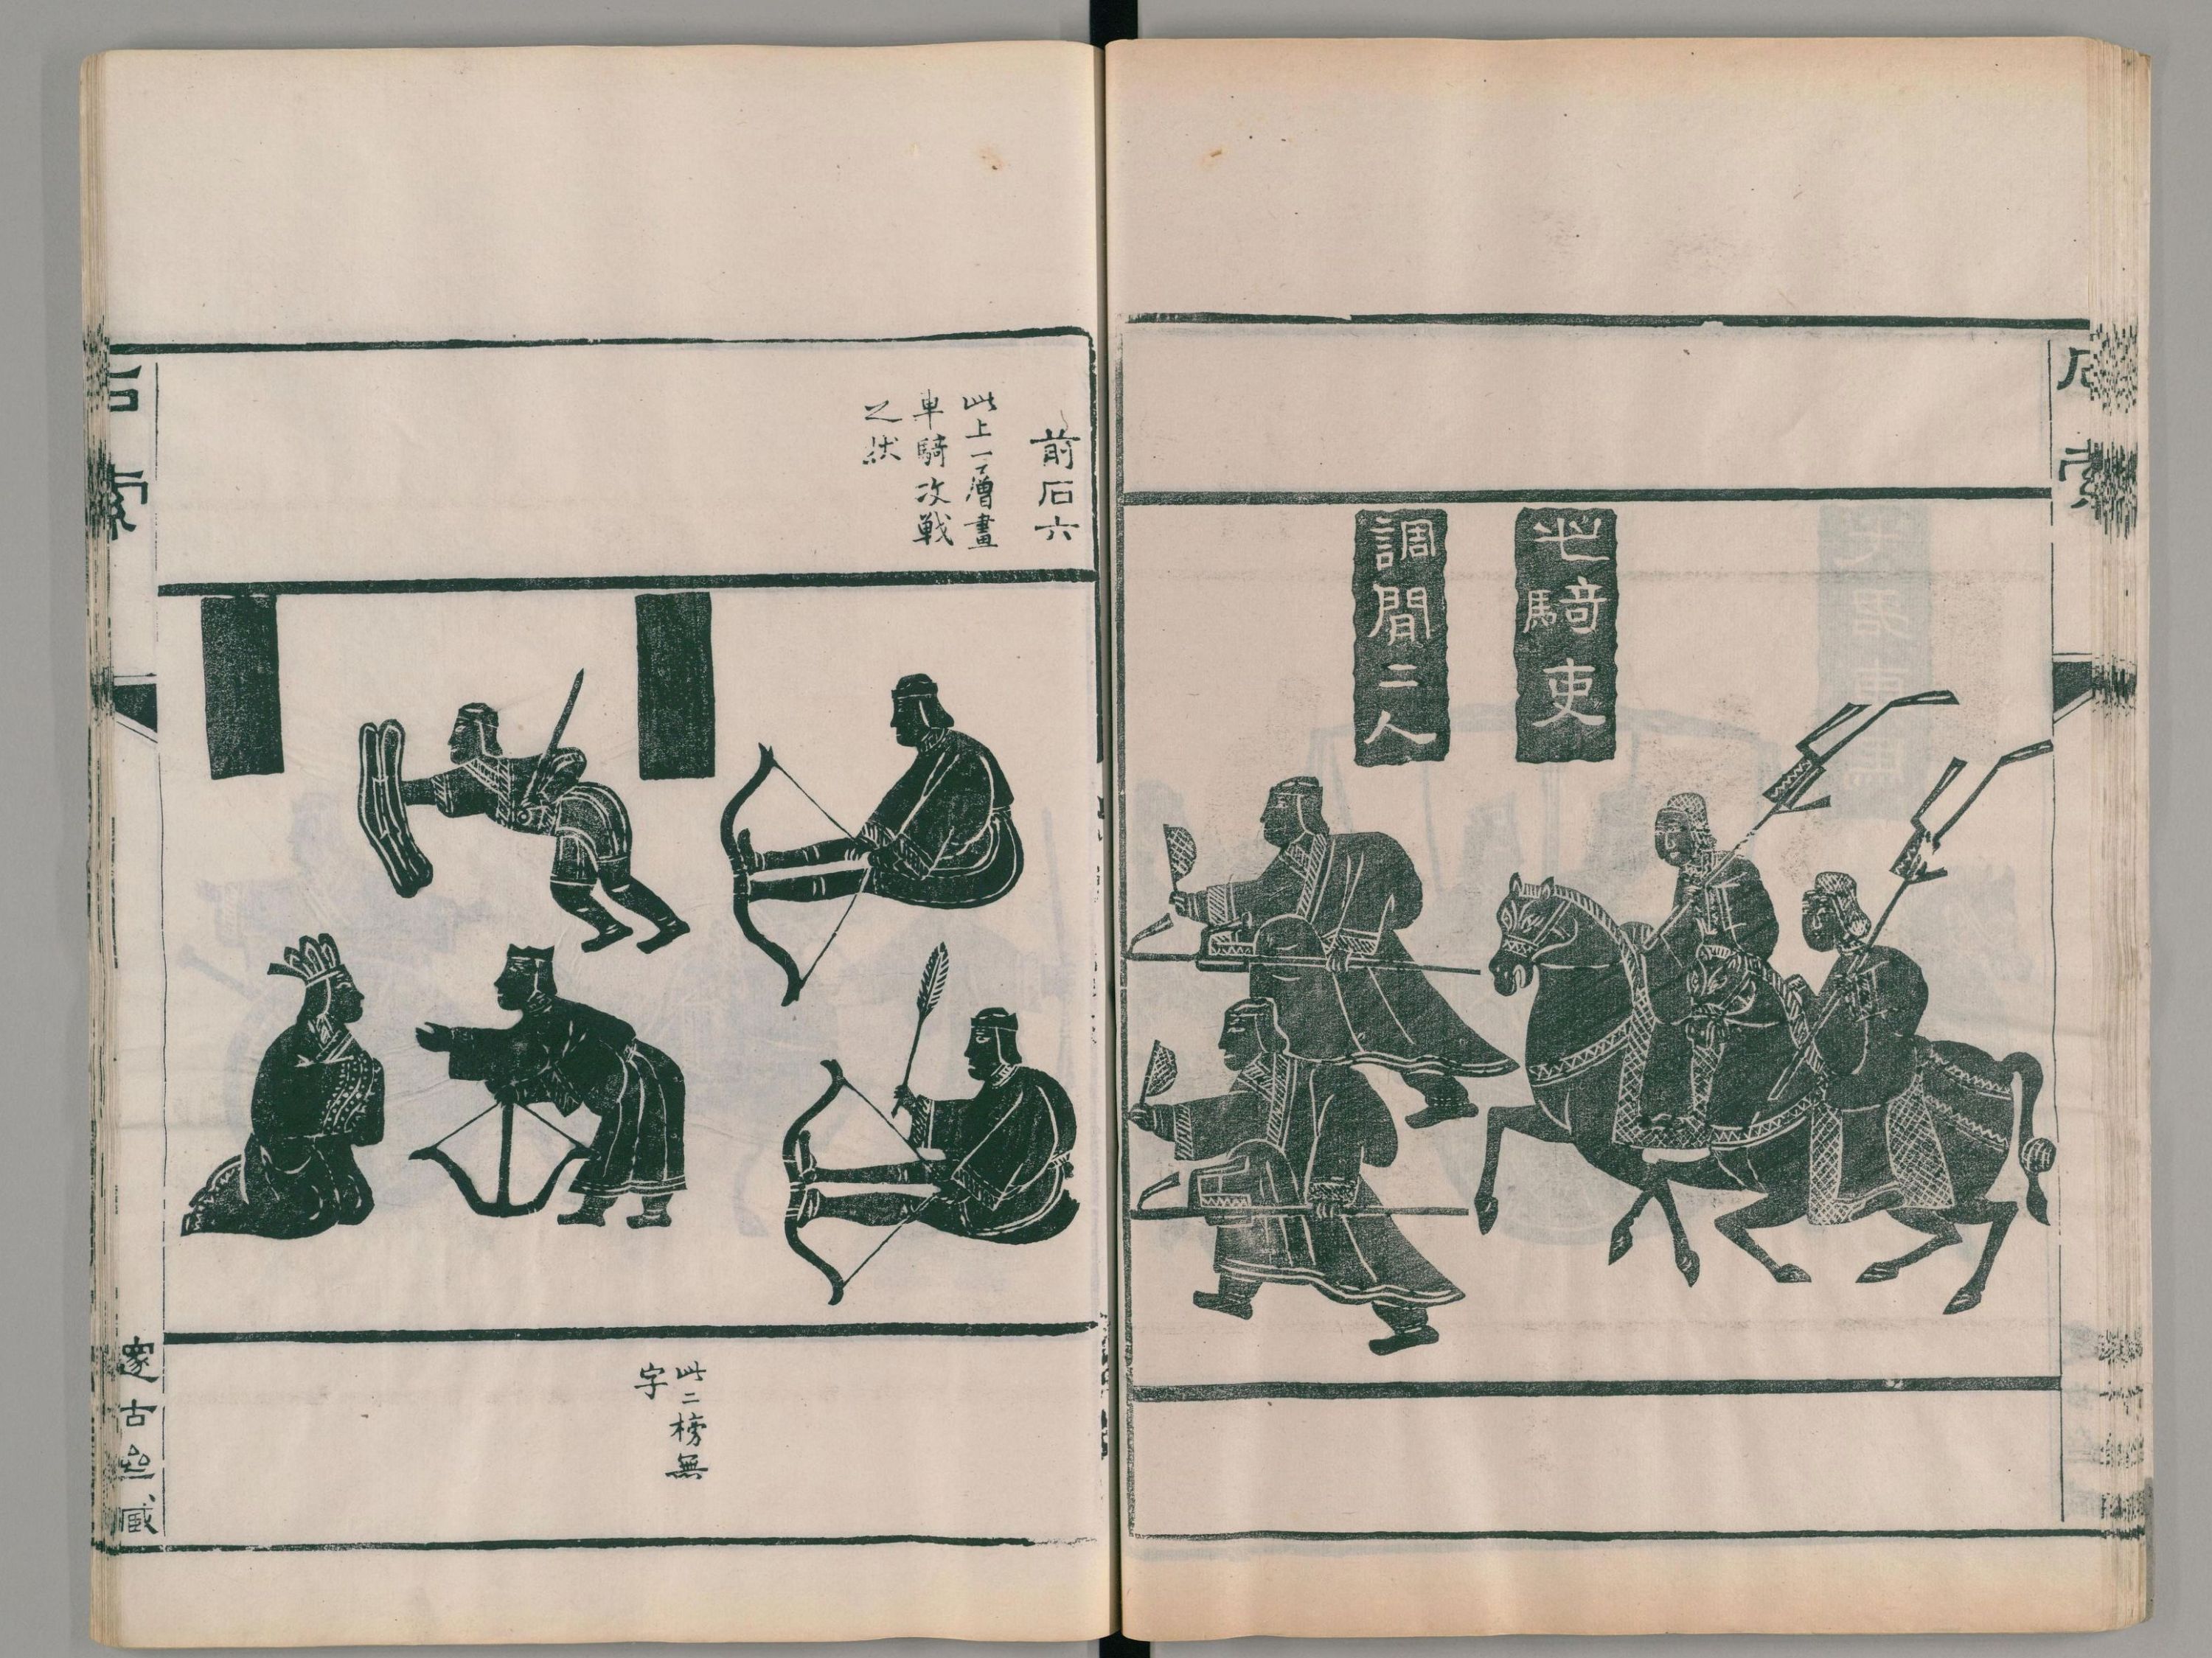 石索
此騎吏
調間二人
前石六
此上一層畫
車騎攻戦
之状
此二榜無
字
石索
邃古齋藏